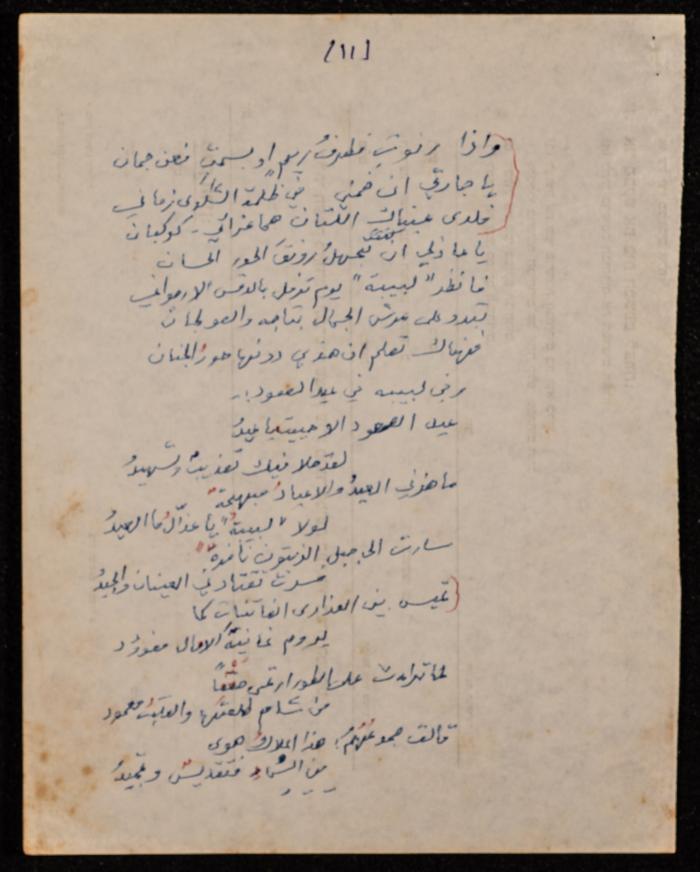 [١١]
واذا رنوتِ فطرفُ ريم او بسمتِ فعن جمان
يا جارتي ان ضمني في ظلمة الشكوى زماني
فلدى عينيك اللتان هما عزائي - كوكبان
يا عاذلي ان تجهل رونق الحور الحسان
فانظر "لبيبة" يوم ترفل بالدمقس الارجواني
تبدو على عرش الجمال بتاجه والصولجان
فهناك تعلم ان هذي دونها حور الجنان
وفي لبيبه في عيد الصعود :-
عيد الصعود الا حييت يا عيدُ
لقد حلا فيك تغريد وتسهيدُ
ما هزني العيدُ والاعيادُ مبهجةٌ
لولا "لبيبةُ" يا عذّالُ ما العيدُ
سارت الى جبل الزيتون نافرةً
فسرت تقتادني العينان والجيدُ
تميس بين العذارى الفاتنات كما
يروم غانيةَ الآمال مفؤود
لما تراءت على الطور ارتمى صَعِقاً
من شام طلعتها والقلبُ معمود
قالت جموعُهُمُ: هذا الملاكُ هوى
من السماءِ فتقديسٌ وتمجيدُ